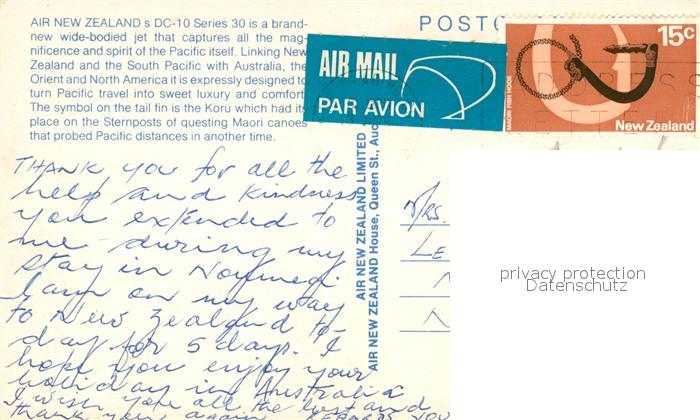 AIR NEW ZEALAND s DC-10 Series 30 is a brand-
new wide-bodied jet that captures all the mag-
nificence and spirit of the Pacific itself. Linking New
Zealand and the South Pacific with Australia, the
Orient and North America it is expressly designed to
turn Pacific travel into sweet luxury and comfort
The symbol on the tail fin is the Koru which had its
place on the Sternposts of questing Maori canoes
that probed Pacific distances in another time.
POSTC
AIR MAIL
PAR AVION
15c
MAORI FISH HOOK
New Zealand
AIR NEW ZEALAND LIMITED
AIR NEW ZEALAND House, Queen St., Auc
THANK you for all the
help and kindness
you extended to
me during my
stay in
I am on my way
to New Zealand to-
day for 5 days. I
hope you enjoy your
holiday in Australia
I wish you all the best and
thank you again
MRS.
LE
N
N
privacy protection
Datenschutz